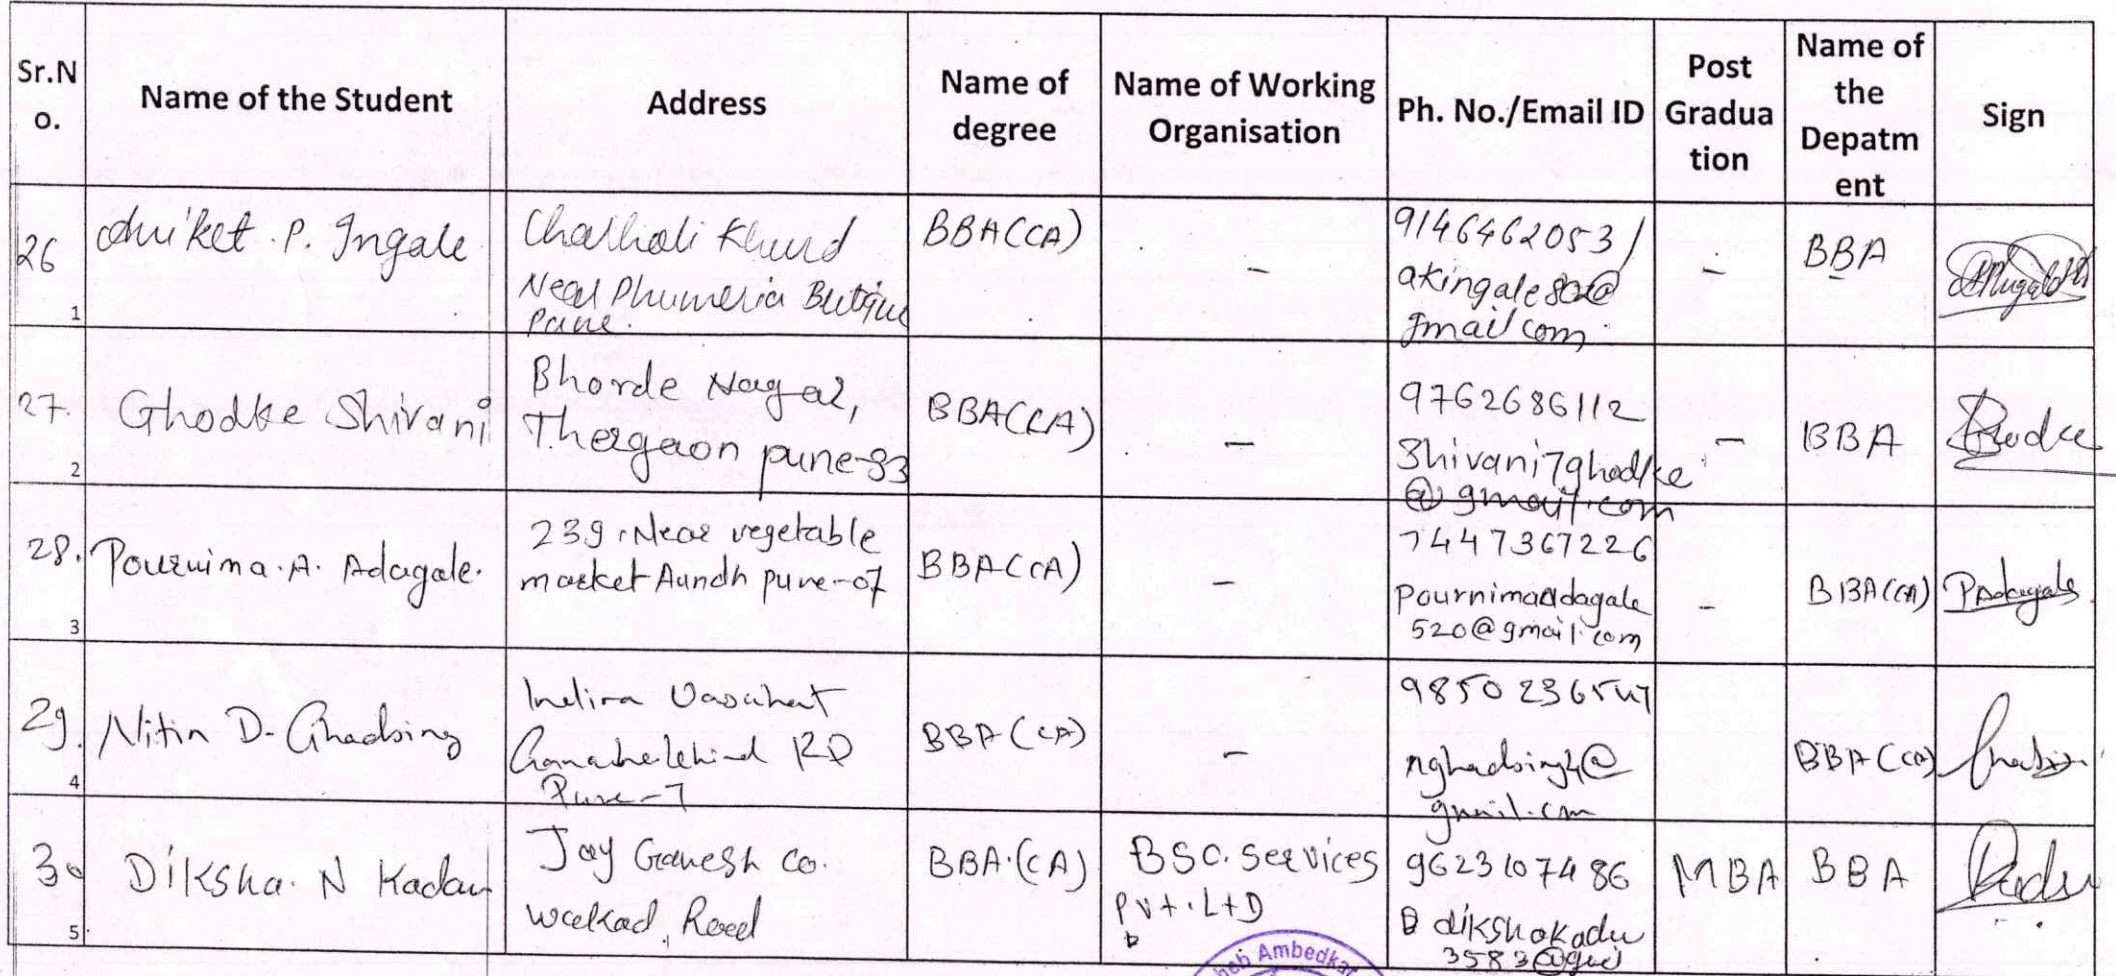 Sr.N
o.
Name of the Student
Address
Name of
degree
Name of Working
Organisation
Ph. No./Email ID
Post
Gradua
tion
Name of
the
Depatm
ent
Sign
26
1
Aniket P. Ingale
Khurd
Near Phumeria
Pune.
BBA(CA)
-
9146462053/
akingale
gmail com
-
BBA
27.
2
Ghodke Shivani
Bhorde Nagar,
Thergaon pune-33
BBA(CA)
-
9762686112
Shivani7ghodke
@gmail.com
-
BBA
28.
3
Pournima. A. Adagale.
239. Near vegetable
market Aundh pune-07
BBA(CA)
-
7447367226
Pournimaadagale
520@gmail.com
-
BBA(CA)
PAdagale
29.
4
Nitin D. Ghadsing
Indira Vasahat
RD
Pune-7
BBA(CA)
-
gmail.com
BBA(CA)
30
5
Diksha. N Kadam
Jay Ganesh Co.
Road
BBA.(CA)
BSC. Services
Pvt. LtD
9623107486
dikshakadu
3583@
MBA
BBA
Ambedkar